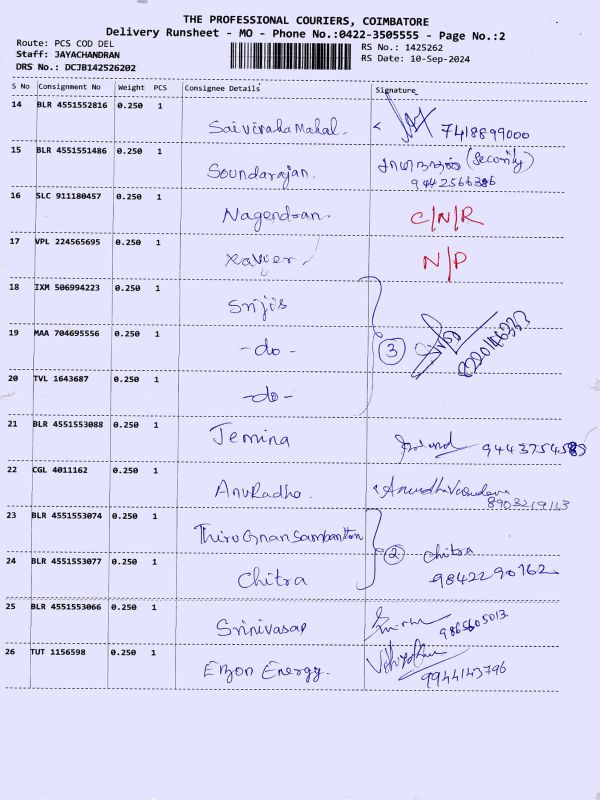 THE PROFESSIONAL COURIERS, COIMBATORE
Delivery Runsheet - MO - Phone No.:0422-3505555 - Page No.:2
Route: PCS COD DEL
Staff: JAYACHANDRAN
DRS No.: DCJB142526202
RS No.: 1425262
RS Date: 10-Sep-2024
S No Consignment No Weight PCS Consignee Details Signature
14 BLR 4551552816 0.250 1 Saivivaha Mahal. 7418899000
15 BLR 4551551486 0.250 1 Soundarajan. (Security)
9442566386
16 SLC 911180457 0.250 1 Nagendran. C/N/R
17 VPL 224565695 0.250 1 Xavier N/P
18 IXM 506994223 0.250 1 Srijis
19 MAA 704695556 0.250 1 -do- 3
20 TVL 1643687 0.250 1 -do-
21 BLR 4551553088 0.250 1 Jemina
22 CGL 4011162 0.250 1 AnuRadha.
23 BLR 4551553074 0.250 1 ThiruGnanSambanthan
24 BLR 4551553077 0.250 1 Chitra 2 Chitra
9842290162
25 BLR 4551553066 0.250 1 Srinivasan
9865605013
26 TUT 1156598 0.250 1 Energy.
9944143796